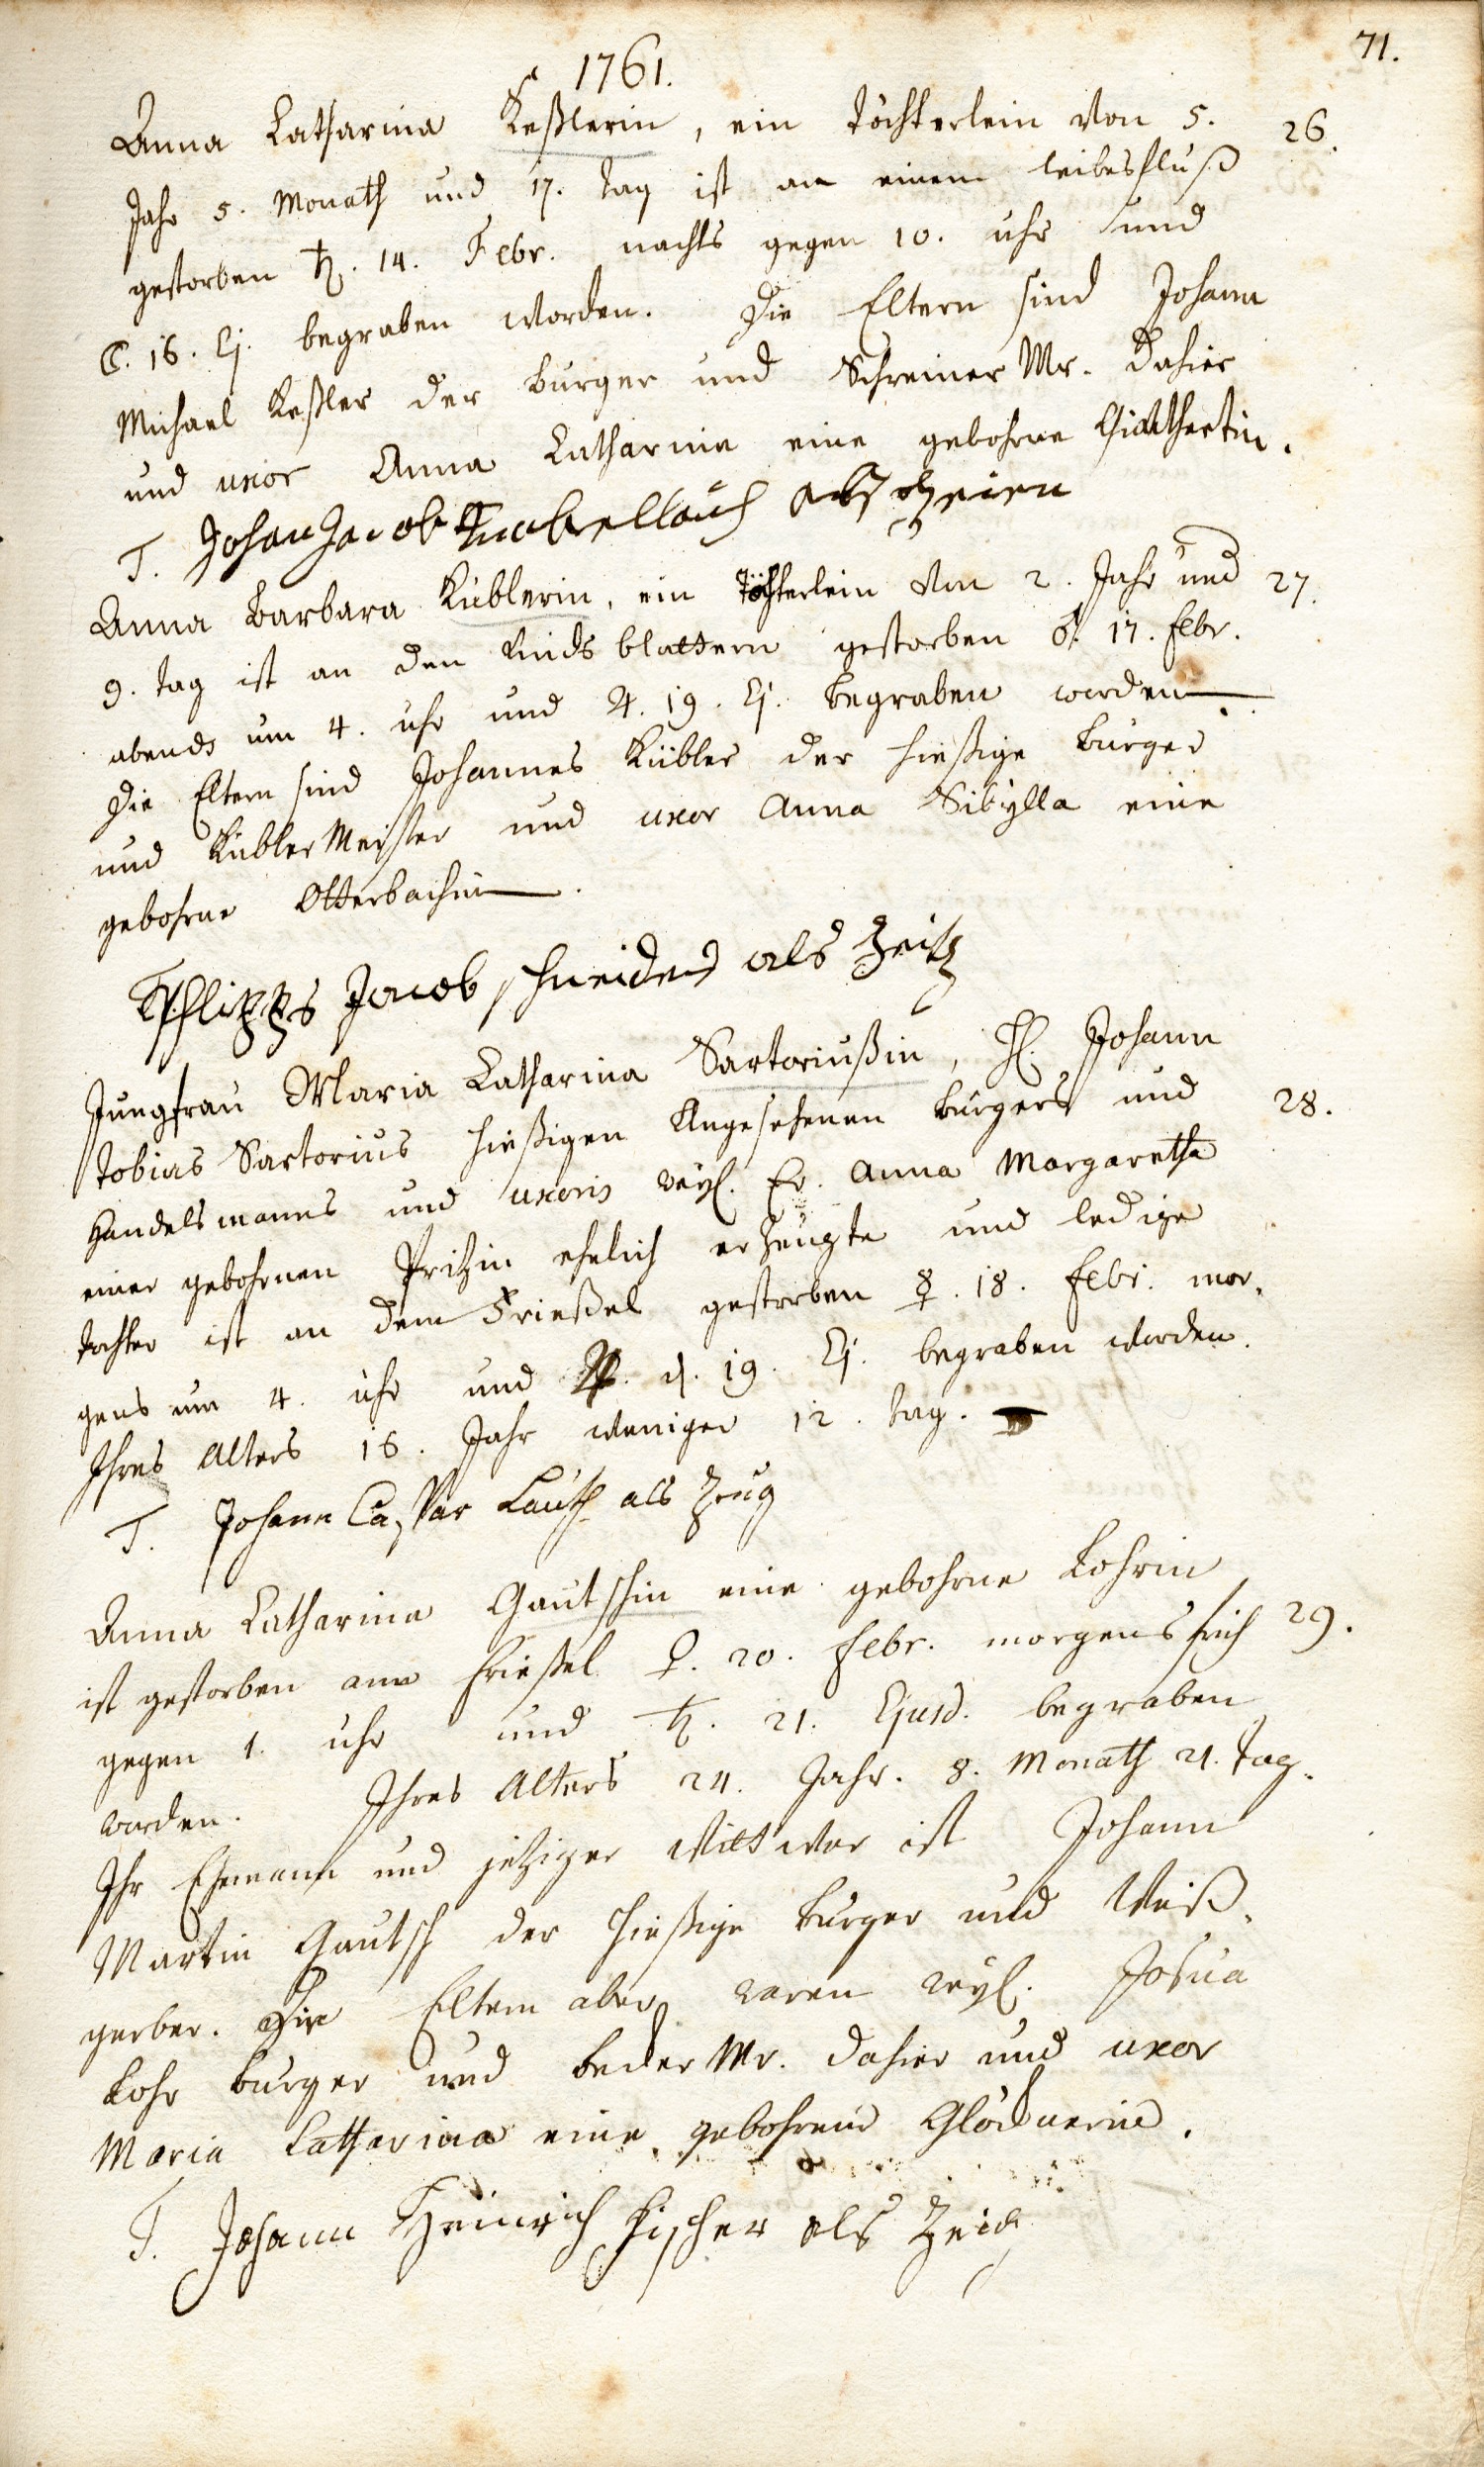 71.
1761.
Anna Catharina Keßlerin, ein Töchterlein von 5. 26.
Jahr 5. Monath und 17. tag ist an einem leibesfluß
gestorben ♄. 14. Febr. nachts gegen 10. uhr und
☾. 16. Ej. begraben worden. Die Eltern sind Johann
Michael Keßler der burger und Schreiner Mr. dahier
und uxor Anna Catharina eine gebohrne
T. Johan Jacob als
Anna Barbara Küblerin, ein Töchterlein von 2. Jahr und 27.
9. tag ist an den Kindsblattern gestorben ♂. 17. Febr.
abends um 4. uhr und ♃. 19. Ej. begraben worden.
Die Eltern sind Johannes Kübler der hießige burger
und Kübler Meister und uxor Anna Sibylla eine
gebohrne Otterbachin.
Jacob schneider als Zeig
Jungfrau Maria Catharina Sartoriußin, H. Johann
Tobias Sartorius hießigen Angesehenen burgers und 28.
Handelsmanns und uxoris weyl. Fr. Anna Margaretha
einer gebohrnen Pritzin ehelich erzeugte und ledige
tochter ist an dem Frießel gestorben ☿. 18. Febr. mor-
gens um 4. uhr und ♃. d. 19. Ej. begraben worden.
Ihres Alters 16. Jahr weniger 12. tag.
T. Johann Caspar Lauth als Zeug
Anna Catharina Gautschin eine gebohrne Lohrin
ist gestorben am Frießel ♀. 20. Febr. morgens früh 29.
gegen 1. uhr und ♄. 21. Ejusd. begraben
worden. Ihres Alters 24. Jahr. 8. Monath 21. tag.
Ihr Ehemann und jetziger Wittwer ist Johann
Martin Gautsch der hießige burger und Weiß-
gerber. Die Eltern aber waren weyl. Josua
Lohr burger und Beder Mr. dahier und uxor
Maria Catharina eine gebohrene Glöcknerin.
T. Johann Heinrich Fischer als Zeig